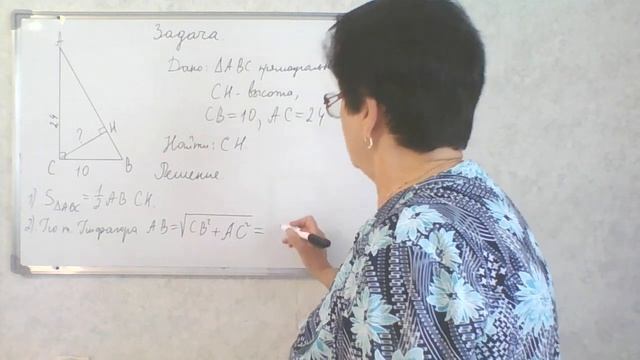 Задача
Дано: ΔABC прямоугольн
CH - высота,
CB = 10, AC = 24
Найти: CH.
Решение
A
24
?
H
C
10
B
1) S ΔABC = 1/2 AB CH.
2) По т. Пифагора AB = √CB² + AC² =